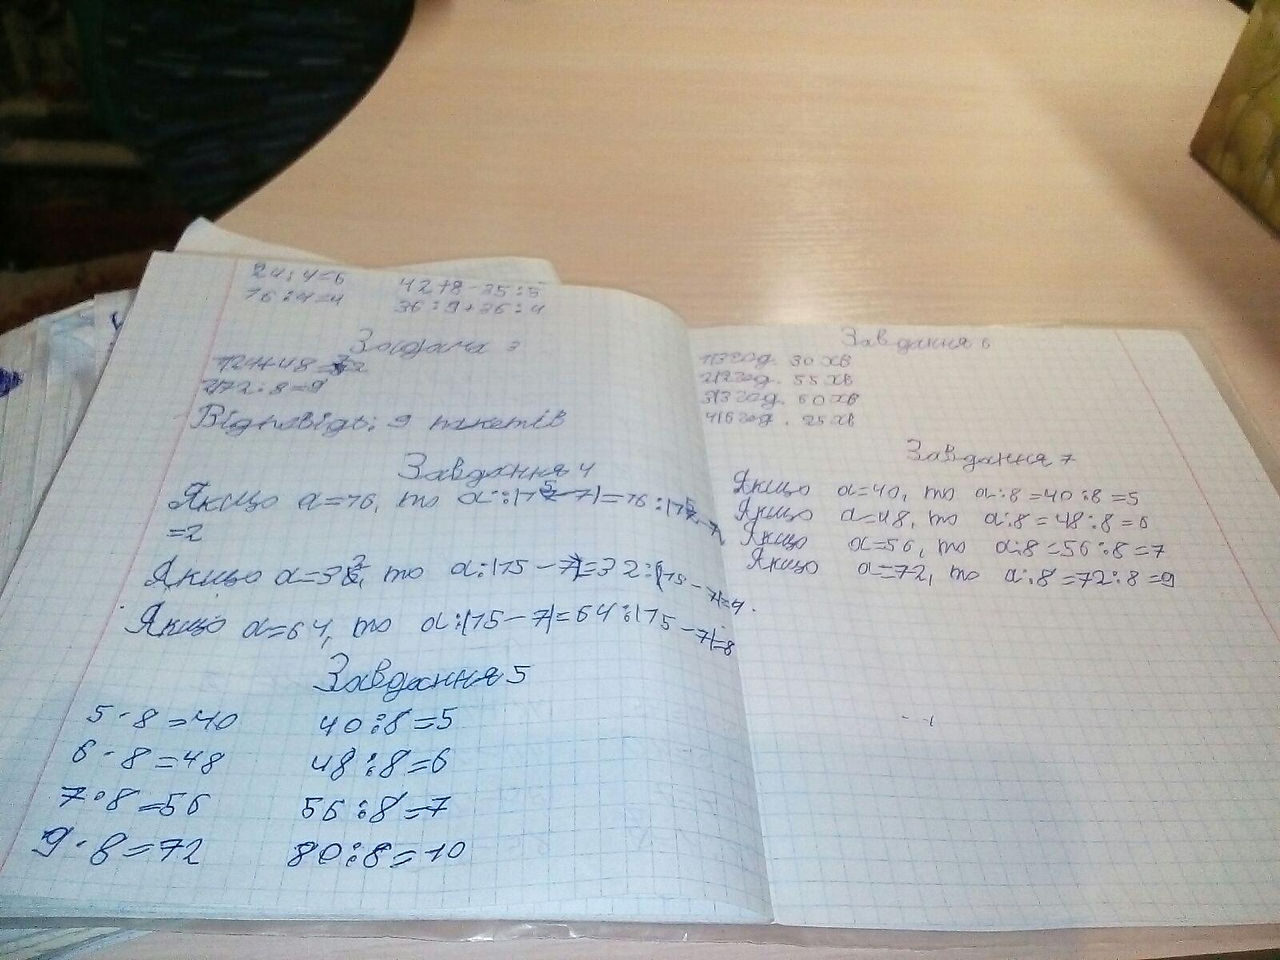 24:4=6 42+8-35:5
16:4=4 36:9+36:4
Задача 3
1)24+48=72
2)72:8=9
Відповідь: 9 пакетів
Завдання 4
Якщо а=16, то а:(15-7)=16:(15-7)
=2
Якщо а=32, то а:(15-7)=32:(15-7)=4.
Якщо а=64, то а:(15-7)=64:(15-7)=8
Завдання 5
5·8=40 40:8=5
6·8=48 48:8=6
7·8=56 56:8=7
9·8=72 80:8=10
Завдання 6
1)3год. 30 хв
2)2год. 55 хв
3)3год. 50 хв
4)6год. 25хв
Завдання 7
Якщо а=40, то а:8=40:8=5
Якщо а=48, то а:8=48:8=6
Якщо а=56, то а:8=56:8=7
Якщо а=72, то а:8=72:8=9